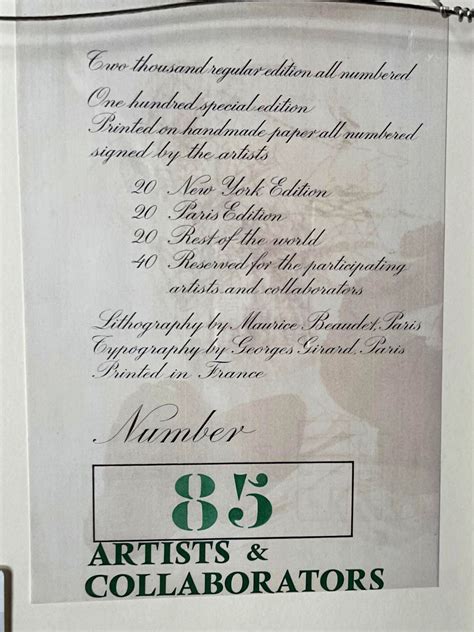 Two thousand regular edition all numbered
One hundred special edition
Printed on handmade paper all numbered
signed by the artists
20 New York Edition
20 Paris Edition
20 Rest of the world
40 Reserved for the participating
artists and collaborators
Lithography by Maurice Beaudet, Paris
Typography by Georges Girard, Paris
Printed in France
Number
85
ARTISTS &
COLLABORATORS